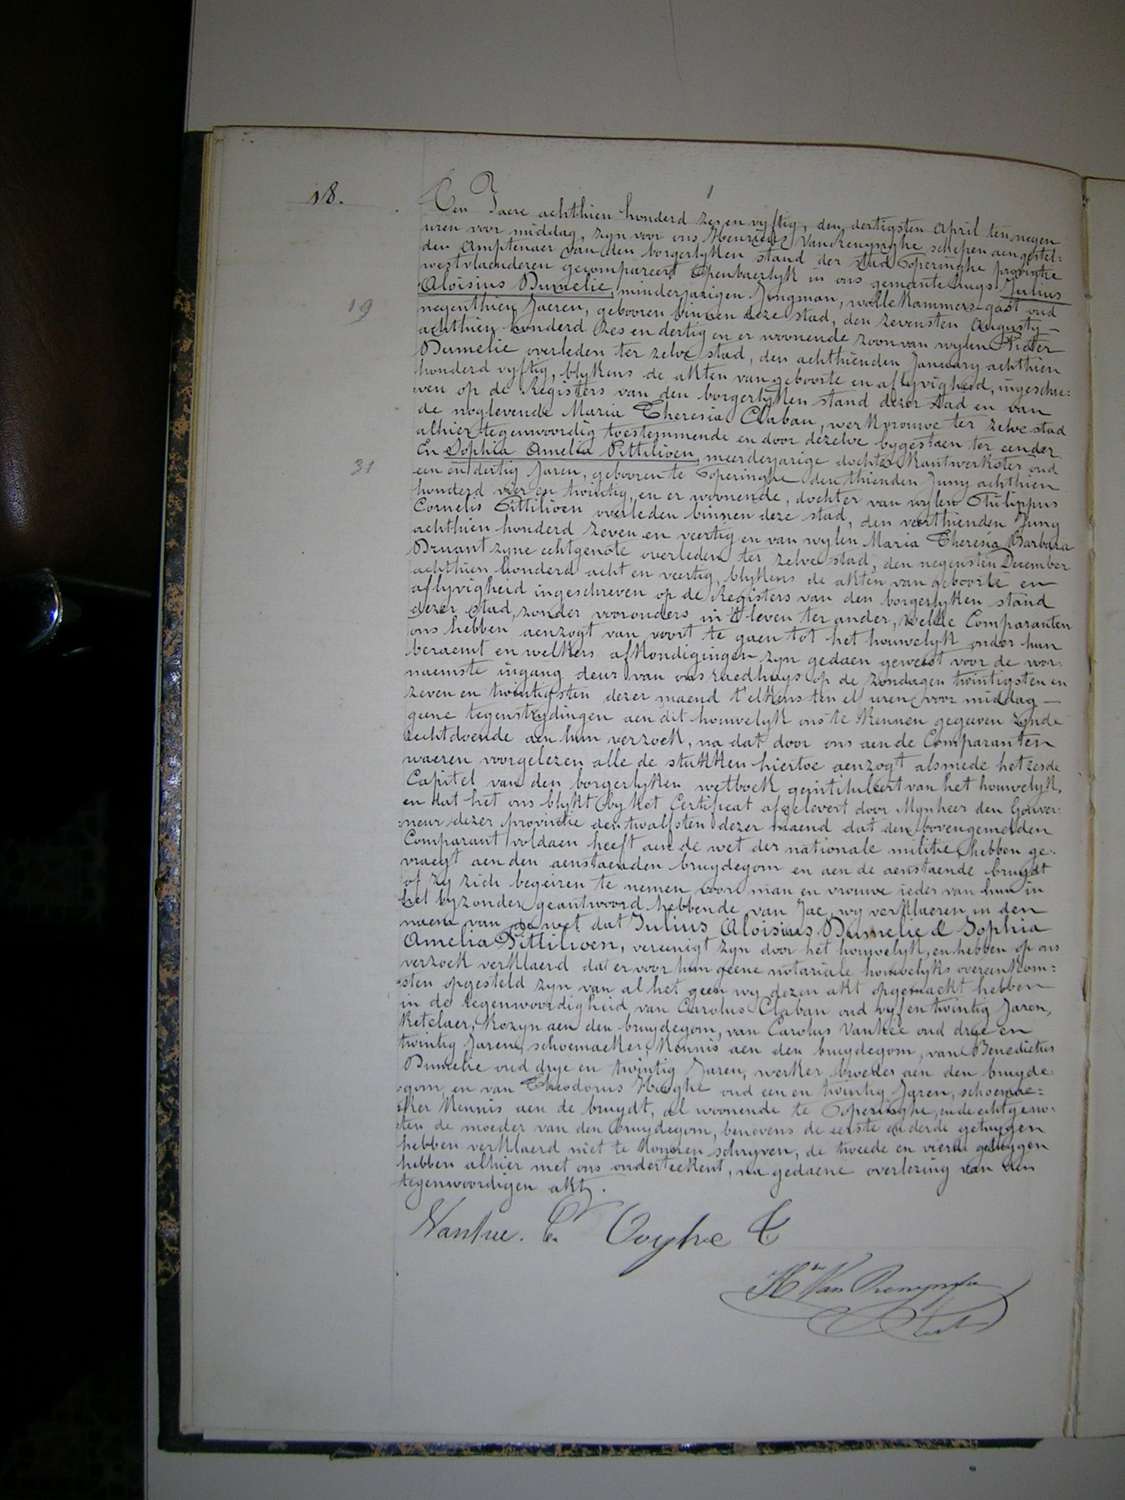 18.
Ten Jaere achthien honderd zes en vyftig, den dertigsten April ten negen
uren voor middag, zyn voor ons Henricus Vanrenynghe schepen aengestel-
den Amptenaer van den borgerlyken stand der stad Poperinghe provincie
westvlaenderen gecompareert openbaerlyk in ons gemeente huys: Julius
Aloisius Dumelie, minderjarigen Jongman, wolle kammers gast oud
19
negenthien Jaeren, gebooren binnen deze stad, den zevensten Augusty
achthien honderd zes en dertig en er woonende zoon van wylen Pieter
Dumelie overleden ter zelve stad, den achthienden January achthien
honderd vyftig, blykens de akten van geboorte en aflyvigheid, ingeschre:
ven op de Registers van den borgerlyken stand dezer stad en van
de noglevende Maria Theresia Claban, werkvrouwe ter zelve stad
alhier tegenwoordig toestemmende en door dezelve bygestaen ter eender
En Sophia Amelia Pittilioen, meerderjarige dochter kantwerkster oud
31
een en dertig Jaren, gebooren te Poperinghe den thienden Juny achthien
honderd vier en twintig, en er woonende, dochter van wylen Philippus
Cornelis Pittilioen overleden binnen deze stad, den veerthienden Juny
achthien honderd zeven en veertig en van wylen Maria Theresia Barbara
Druant zyne echtgenote overleden ter zelve stad, den negensten December
achthien honderd acht en veertig, blykens de akten van geboorte en
aflyvigheid ingeschreven op de Registers van den borgerlyken stand
dezer stad, zonder voorouders in 't leven ter ander, welke Comparanten
ons hebben aenzogt van voort te gaen tot het houwelyk onder hun
beraemt en welkers afkondigingen zyn gedaen geweest voor de voor-
naemste ingang deur van ons raedhuys op de zondagen twintigsten en
zeven en twintigsten dezer maend t'elkens ten elf uren voor middag
geene tegenstrydingen aen dit houwelyk ons te kennen gegeven zynde
rechtdoende aen hun verzoek, na dat door ons aen de Comparanten
waeren voorgelezen alle de stukken hiertoe aenzogt alsmede het zesde
Capitel van den borgerlyken wetboek geintituleert van het houwelyk,
en dat het ons blykt by het Certificat afgelevert door Mynheer den Gouver-
neur dezer provintie den twalfsten dezer maend dat den bovengemelden
Comparant voldaen heeft aen de wet der nationale militie hebben ge-
vraegt aen den aenstaenden bruydegom en aen de aenstaende bruydt
of zy zich begeiren te nemen voor man en vrouwe ieder van hun in
het byzonder geantwoord hebbende van Jae, wy verklaeren in den
naem van de wet dat Julius Aloisius Dumelie & Sophia
Amelia Pittilioen, vereenigt zyn door het houwelyk, en hebben op ons
verzoek verklaerd dat er voor hun geene notariale houwelyks overeenkom-
sten opgesteld zyn van al het geen wy dezen akt opgemaekt hebben
in de tegenwoordigheid van Carolus Claban oud vyf en twintig Jaren,
ketelaer, kozyn aen den bruydegom, van Carolus Vankee oud drye en
twintig Jaren, schoemaeker, kennis aen den bruydegom, van Benedictus
Dumelie oud drye en twintig Jaren, werker broeder aen den bruyde-
gom, en van Theodorus Hooghe oud een en twintig Jaren, schoemae-
ker kennis aen de bruydt, al woonende te Poperinghe, en de echtgeno-
ten de moeder van den bruydegom, benevens de eerste en derde getuygen
hebben verklaerd niet te konnen schryven, de tweede en vierde getuygen
hebben alhier met ons onderteekent, na gedaene overlezing van den
tegenwoordigen akt.
Vankee. C.